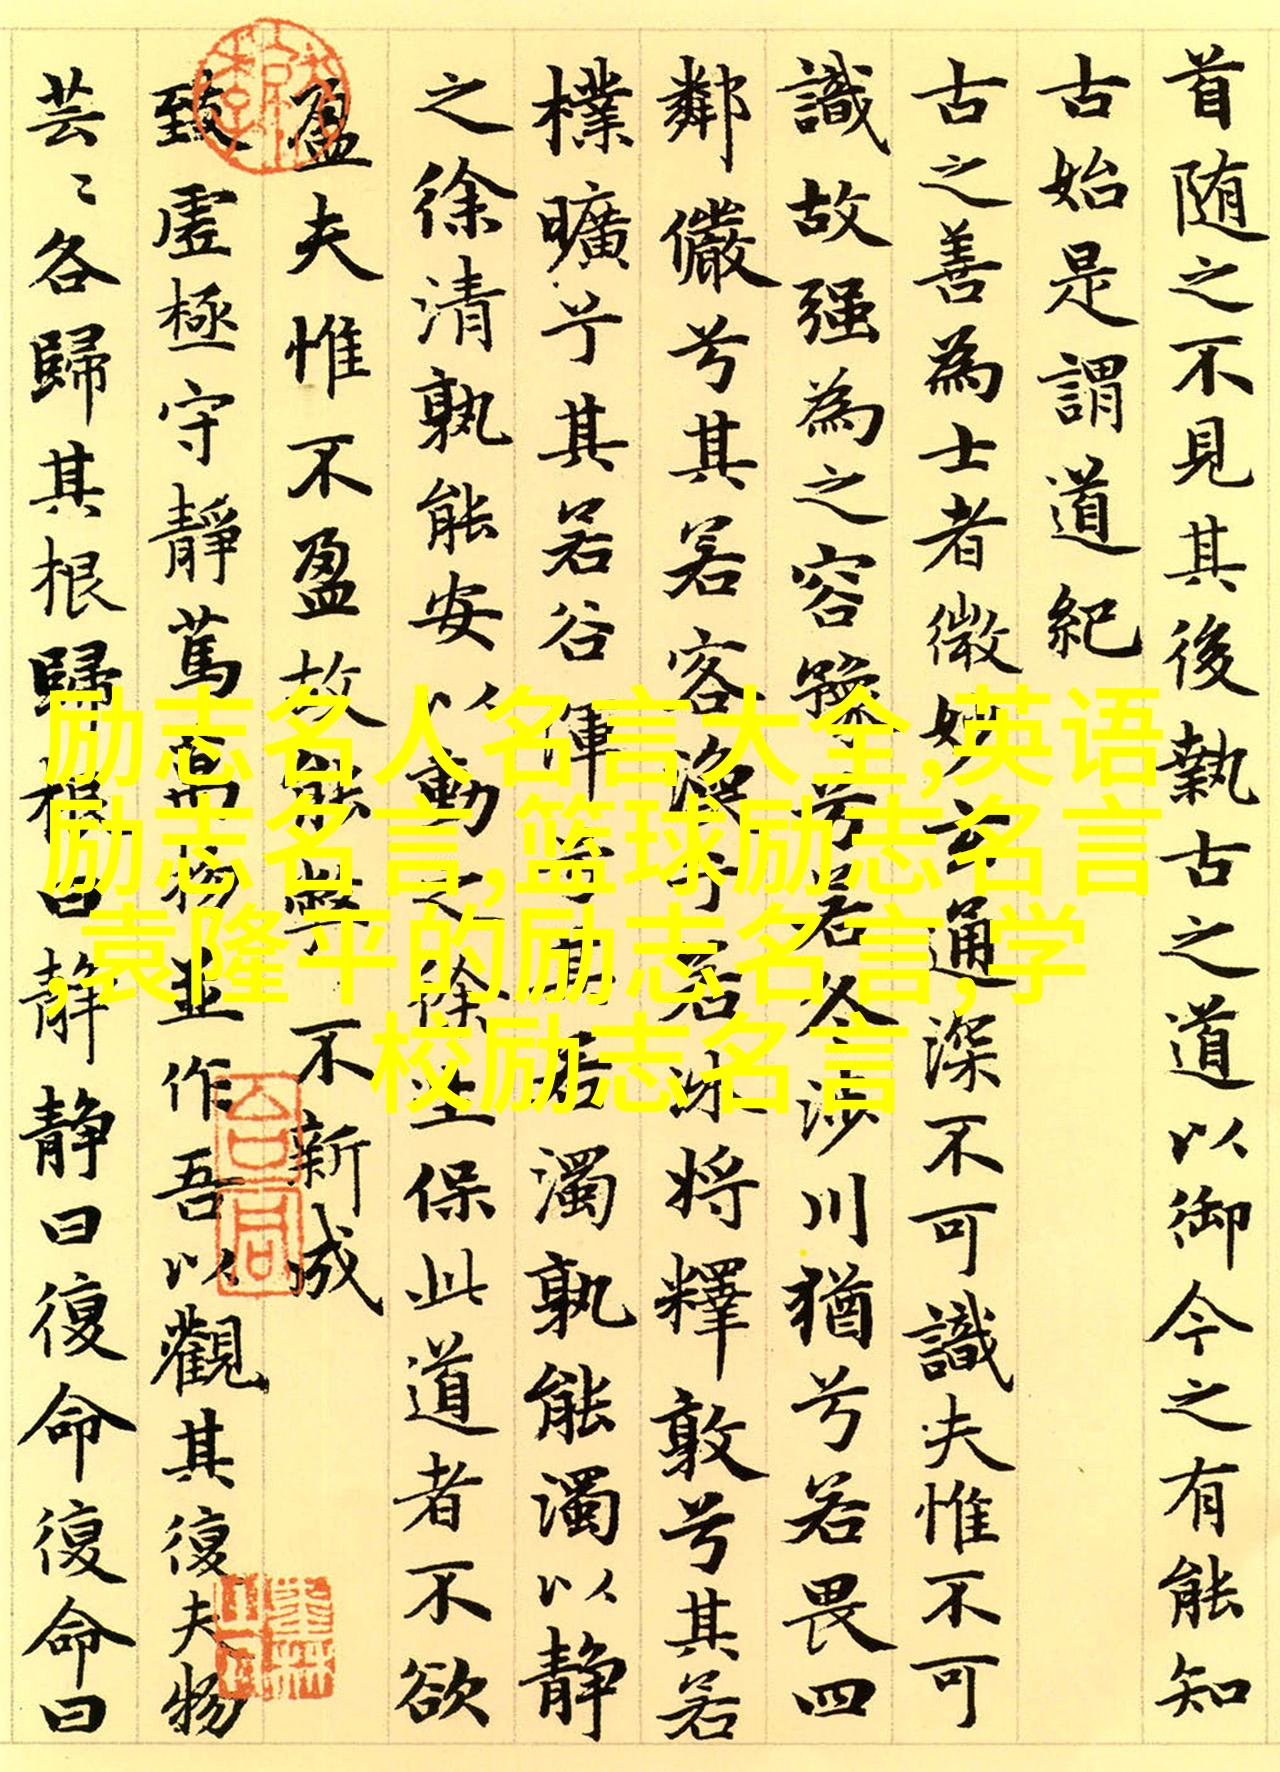 首随之不見其後執古之道以御今之有能知
古始是謂道紀
古之善為士者微妙玄通深不可識夫惟不可
識故强為之容豫兮若冬涉川猶兮若畏四
鄰儼兮其若客渙兮若冰將釋敦兮其若
樸曠兮其若谷渾兮其若濁孰能濁以静
之徐清孰能安以動之徐生保此道者不欲
盈夫惟不盈故能弊不新成
致虛極守靜篤萬物並作吾以觀其復夫物
芸〻各歸其根歸根曰静静曰復命復命曰
励志名人名言大全,英语
励志名言,篮球励志名言
,袁隆平的励志名言,学
校励志名言